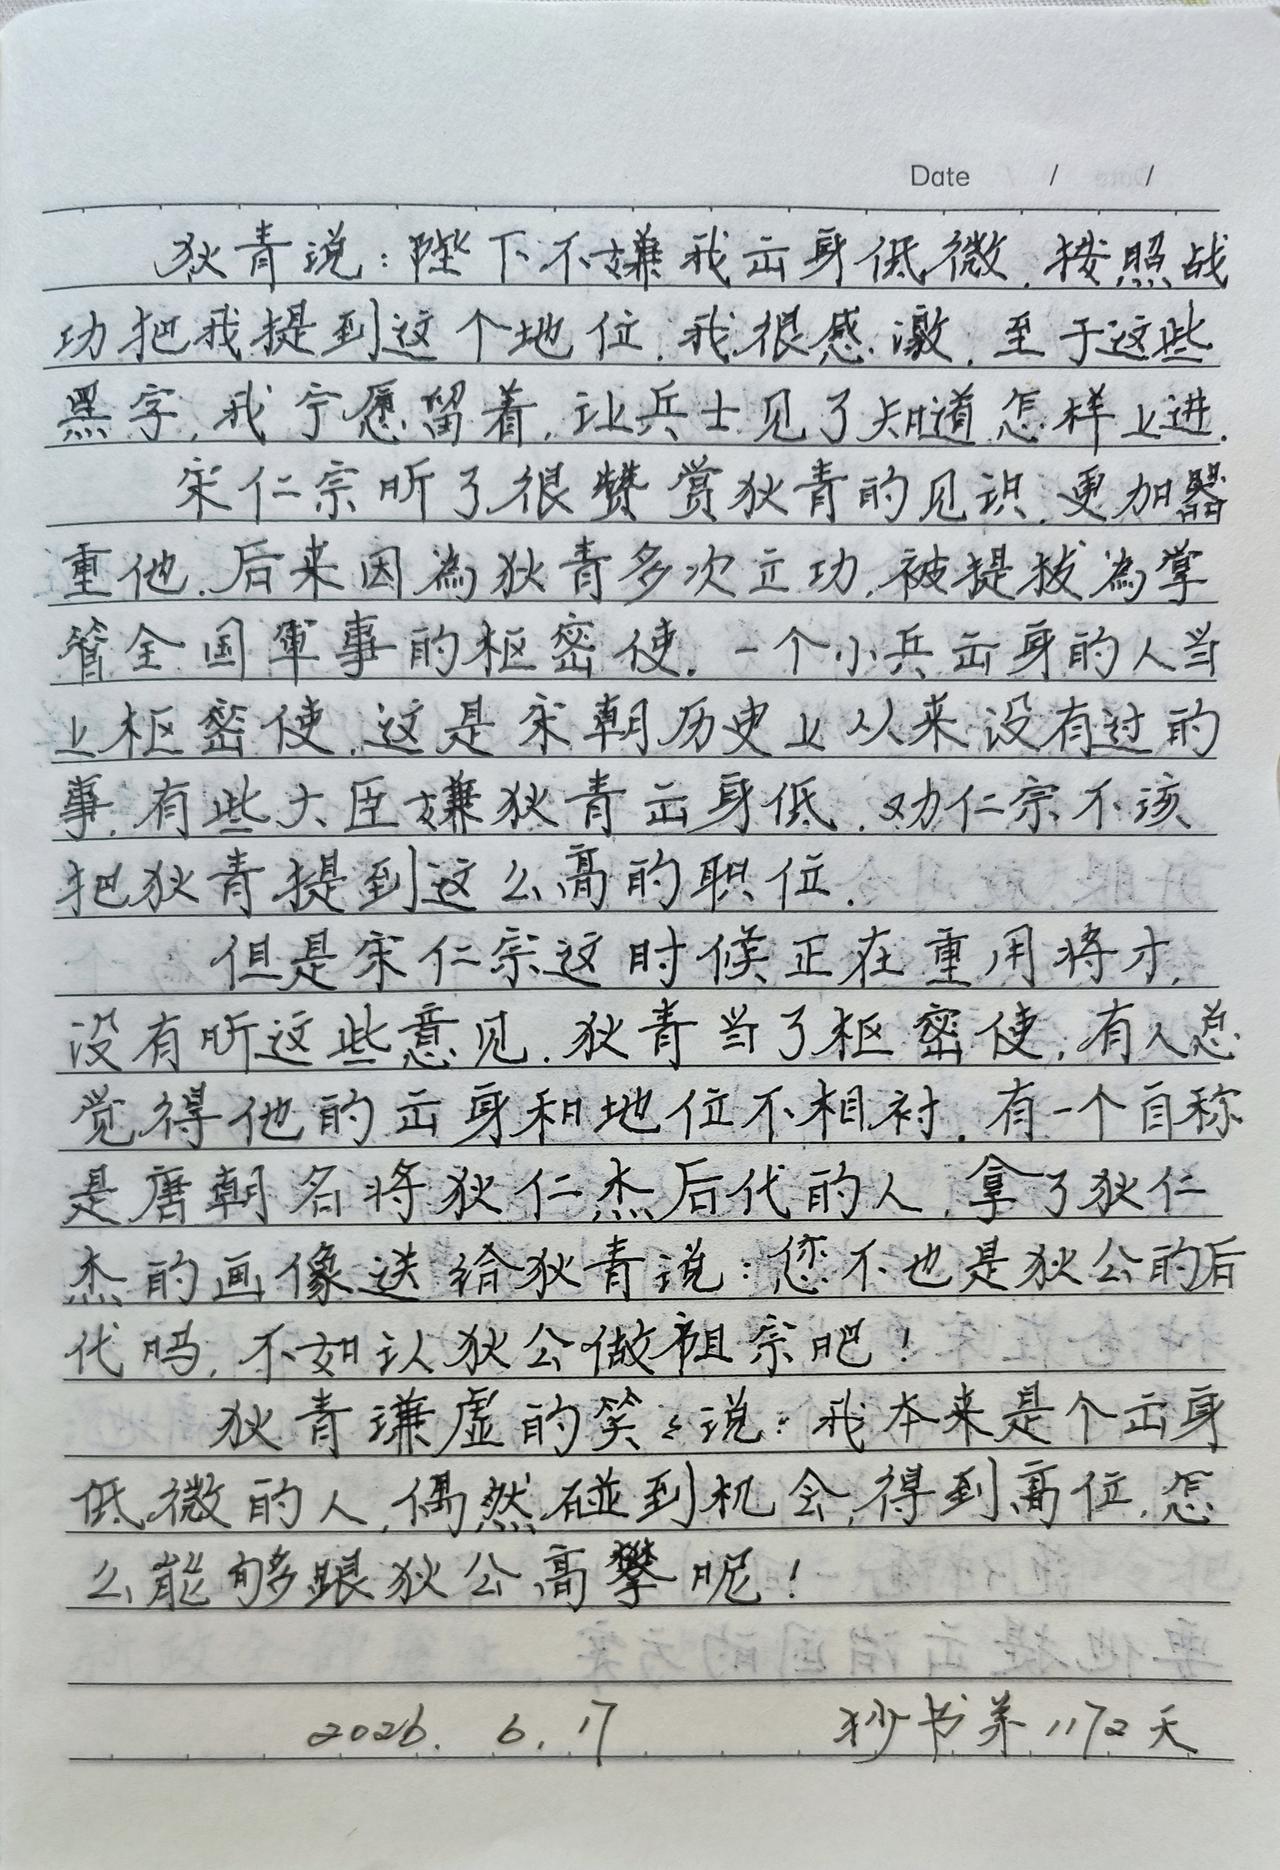 Date / /
狄青说：陛下不嫌我出身低微，按照战
功把我提到这个地位，我很感激，至于这些
黑字，我宁愿留着，让兵士见了知道怎样上进.
宋仁宗听了很赞赏狄青的见识，更加器
重他.后来因為狄青多次立功，被提拔為掌
管全国軍事的枢密使.一个小兵出身的人当
上枢密使，这是宋朝历史上从来没有过的
事，有些大臣嫌狄青出身低，劝仁宗不该
把狄青提到这么高的职位.
但是宋仁宗这时候正在重用将才，
没有听这些意见.狄青当了枢密使，有人总
觉得他的出身和地位不相衬.有一个自称
是唐朝名将狄仁杰后代的人，拿了狄仁
杰的画像送给狄青说：您不也是狄公的后
代吗，不如认狄公做祖宗吧！
狄青谦虚的笑笑说：我本来是个出身
低微的人，偶然碰到机会，得到高位，怎
么能够跟狄公高攀呢！
2026. 6. 17 抄书第1172天